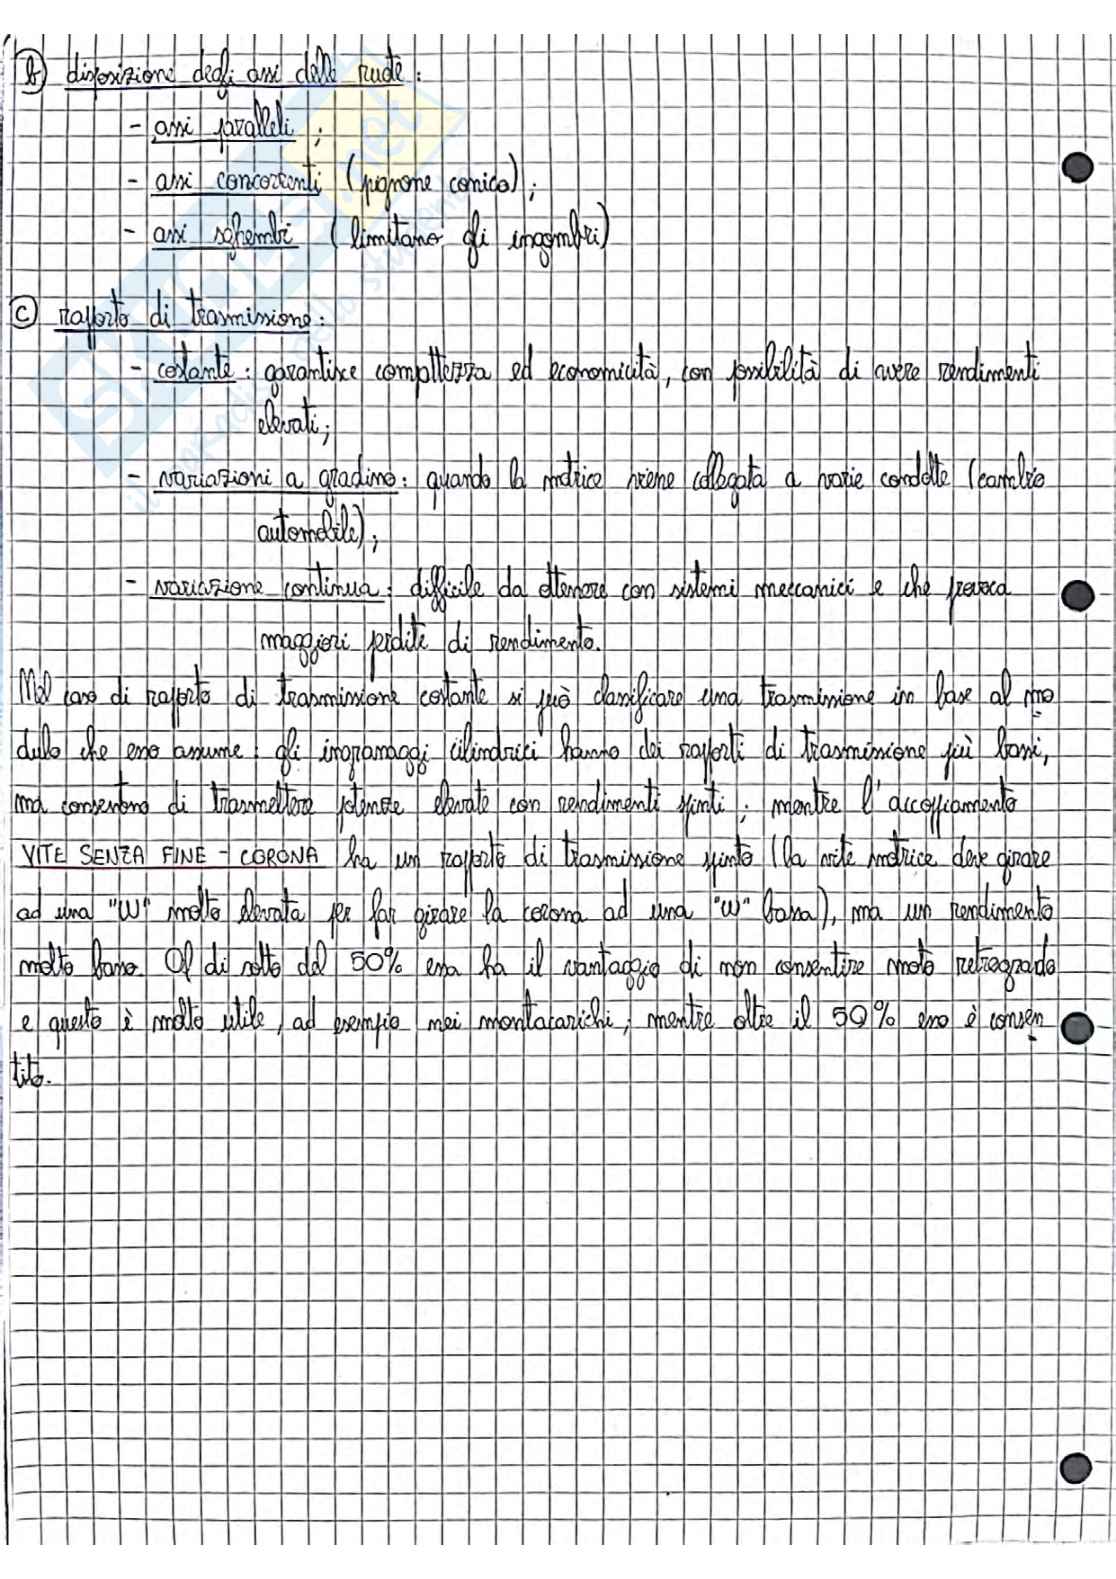 b) disposizione degli assi delle ruote:
- assi paralleli;
- assi concorrenti (pignone conico);
- assi sghembi (limitano gli ingombri)
c) rapporto di trasmissione:
- costante: garantisce compattezza ed economicità, con possibilità di avere rendimenti
elevati;
- variazioni a gradino: quando la motrice viene collegata a varie condotte (cambio
automobile);
- variazione continua: difficile da ottenere con sistemi meccanici e che provoca
maggiori perdite di rendimento.
Nel caso di rapporto di trasmissione costante si può classificare una trasmissione in base al mo
dulo che esso assume: gli ingranaggi cilindrici hanno dei rapporti di trasmissione più bassi,
ma consentono di trasmettere potenze elevate con rendimenti spinti; mentre l'accoppiamento
VITE SENZA FINE - CORONA ha un rapporto di trasmissione spinto (la vite motrice deve girare
ad una "W" molto elevata per far girare la corona ad una "W" bassa), ma un rendimento
molto basso. Al di sotto del 50% essa ha il vantaggio di non consentire moto retrogrado
e questo è molto utile, ad esempio nei montacarichi; mentre oltre il 50% esso è consen
tito.